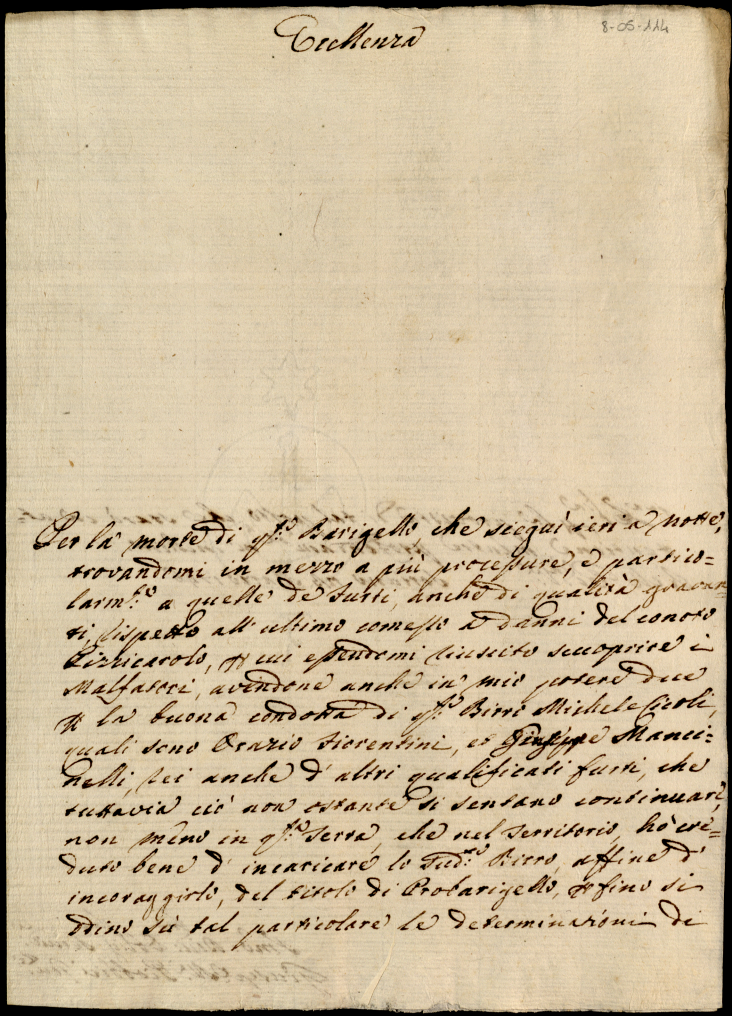 8-05-114
Eccellenza
Per la morte di q.sto Barigello, che seguì ieri a notte,
trovandomi in mezzo a più procedure, e partico=
larm.te a quelle de furti, anche di qualità gravan=
ti, rispetto all' ultimo comesso a danni del conoto
Pizzicarolo, per cui essendomi riuscito scuoprire i
Malfatori, avendone anche in mio potere due
per la buona condotta di q.sto Birro Michele Cicoli,
quali sono Orazio Fiorentini, et Giuseppe Manci=
nelli, rei anche d' altri qualificati furti, che
tuttavia ciò non ostante si sentano continuari,
non meno in q.sta Terra, che nel Territorio, hò cre=
duto bene d' incaricare lo Sud.tto Birro, affine d'
incoraggirlo, del titolo di Probarigello, per fino si
odino sù tal particolare le determinazioni di